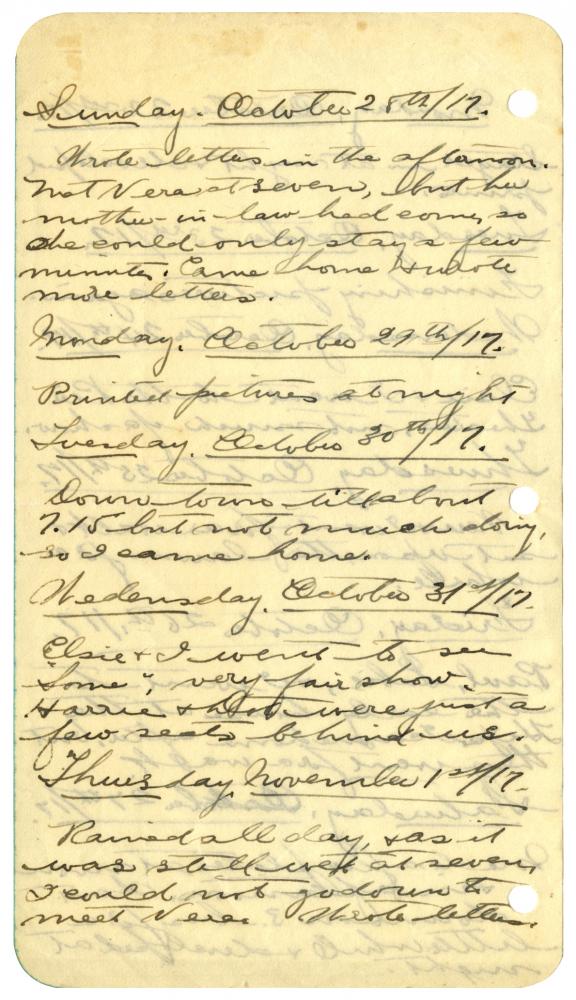 Sunday. October 28th/17.
Wrote letters in the afternoon.
Met Vera at seven, but her
mother-in-law had come, so
she could only stay a few
minutes. Came home & wrote
more letters.
Monday. October 29th/17.
Printed pictures at night
Tuesday. October 30th/17.
Down town till about
7.15 but not much doing,
so I came home.
Wedensday. October 31st/17.
Elsie & I went to see
"Some", very fair show.
Harrie & Dot were just a
few seats behind us.
Thursday, November 1st/17.
Rained all day, & as it
was still wet at seven,
I could not go down to
meet Vera. Wrote letters.